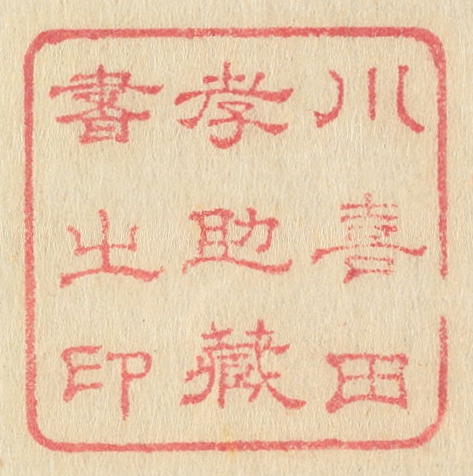 川喜田
孝助藏
書之印